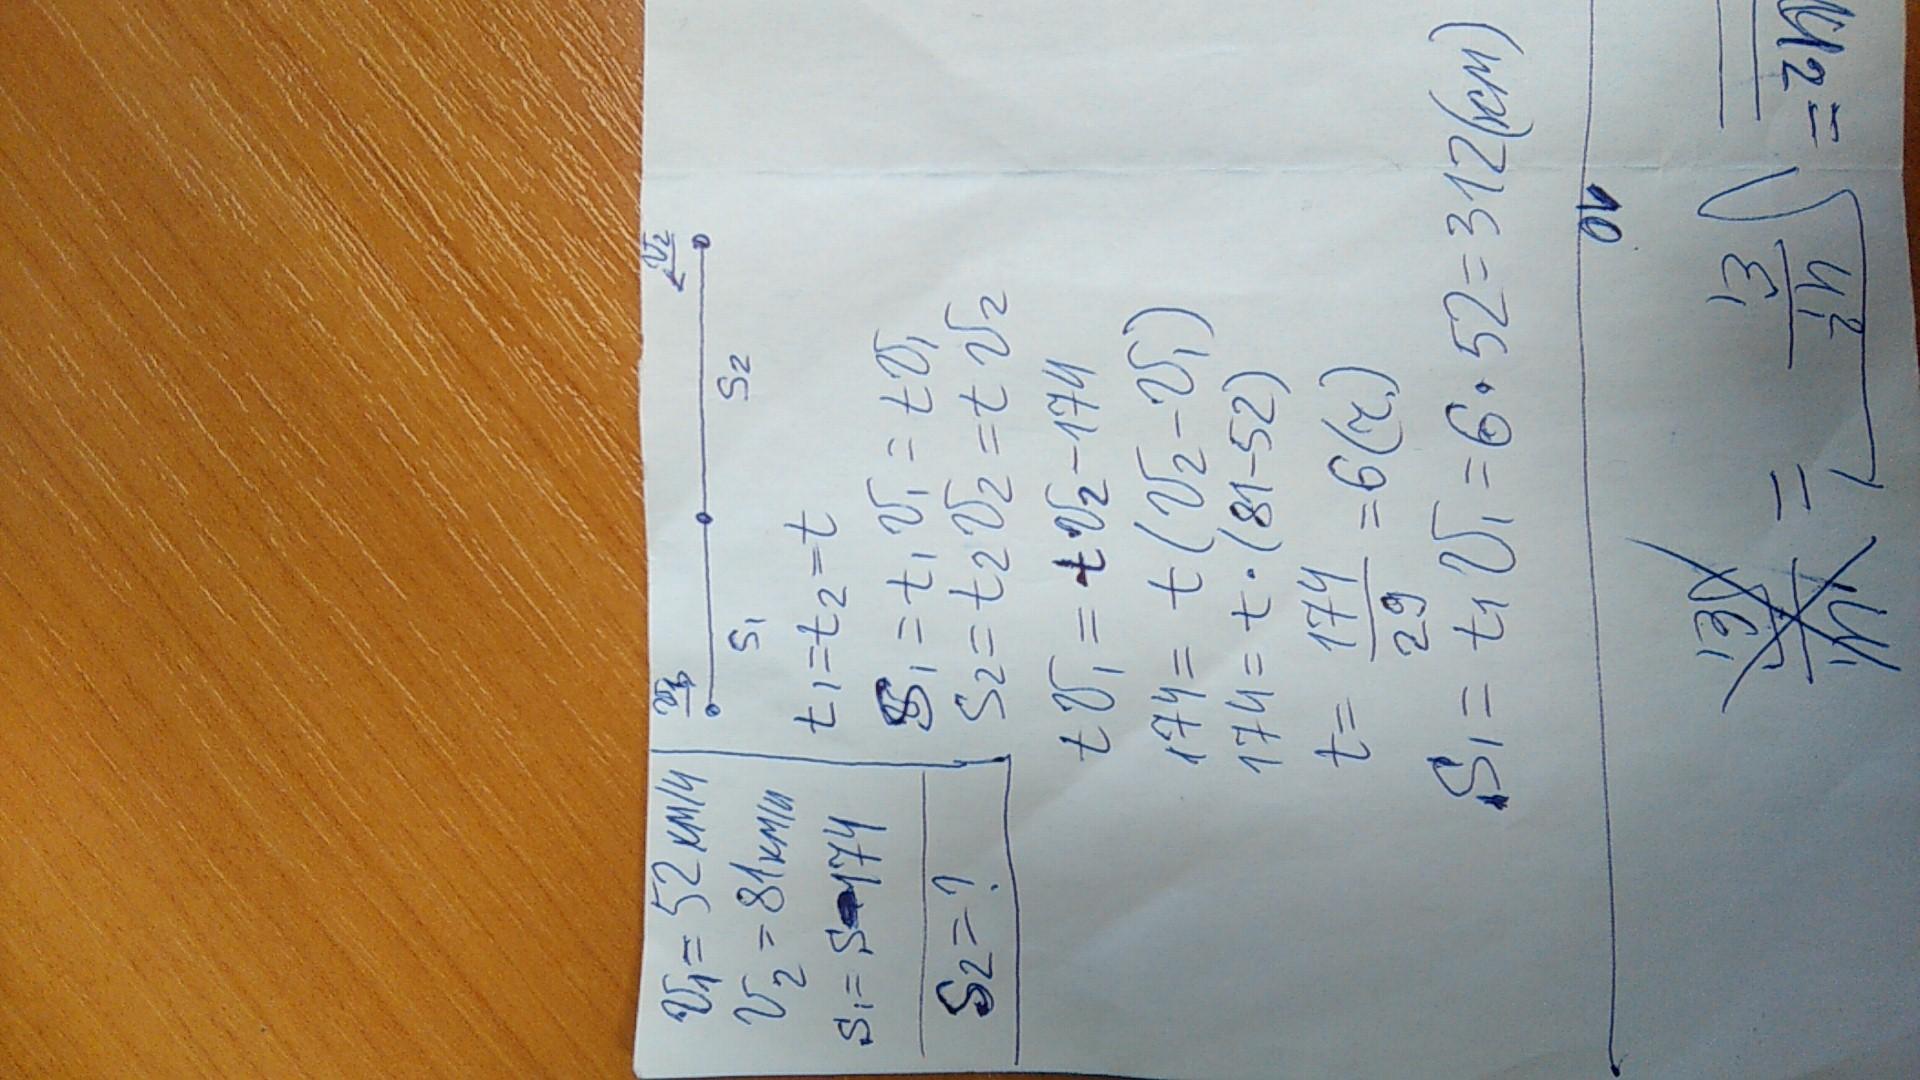 V₁ = 52 км/ч
V₂ = 81 км/ч
S₁ = S - 174
S₂ = ?
V₁ V₂
S₁ S₂
t₁ = t₂ = t
S₁ = t₁ V₁ = t V₁
S₂ = t₂ V₂ = t V₂
t V₁ = t · V₂ - 174
174 = t (V₂ - V₁)
174 = t · (81 - 52)
t = 174/29 = 6 (ч)
S₁ = t₁ V₁ = 6 · 52 = 312 (км)